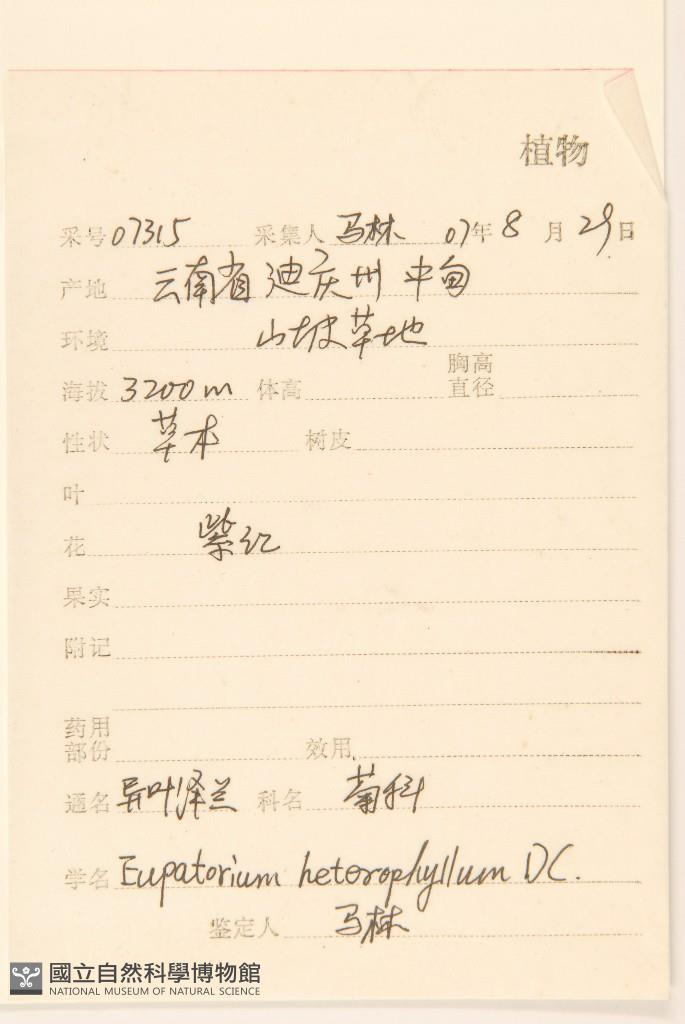 植物
采号 07315 采集人 马林 07年 8 月 29日
产地 云南省迪庆州中甸
环境 山坡草地
海拔 3200m 体高 胸高直径
性状 草本 树皮
叶
花 紫红
果实
附记
药用部份 效用
通名 异叶泽兰 科名 菊科
学名 Eupatorium heterophyllum DC.
鉴定人 马林
國立自然科學博物館
NATIONAL MUSEUM OF NATURAL SCIENCE